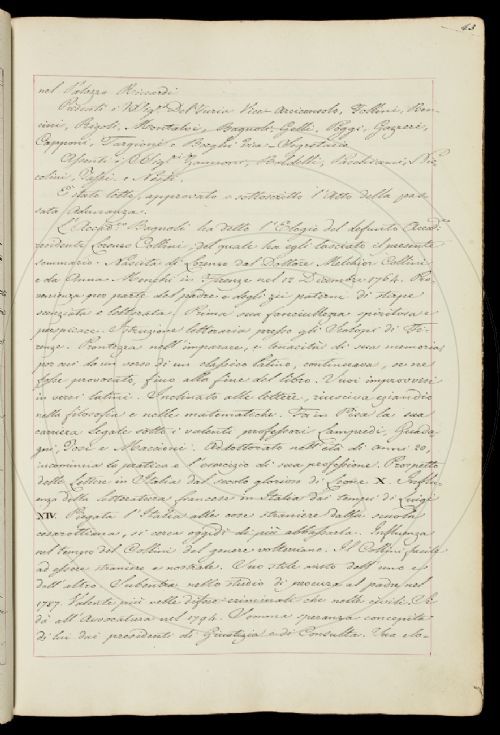 43
nel Palazzo Riccardi.
Presenti i SS.ri Del Furia Vice-Arciconsolo, Follini,
Rigoli, Montalvi, Bagnoli, Gelli, Poggi, Gazzeri,
Capponi, Targioni e
Assenti i Sig.ri Zannoni, Baldelli,
colini,
È stato letto, approvato e sottoscritto l'Atto della pas-
sata Adunanza.
L'Accad.co Bagnoli ha detto l'Elogio del defunto Accad.co
residente Lorenzo Collini, del quale ha egli lasciato il presente
sommario. Nascita di Lorenzo dal Dottore Melchior Collini
e da Anna in Firenze nel 12 Dicembre 1764. Pro-
venienza per parte del padre e degli zii paterni di stirpe
scienziata e letterata. Prima sua fanciullezza spiritosa e
perspicace. Istruzione letteraria presso gli Scolopi di Fi-
renze. Prontezza nell'imparare, e tenacità di sua memoria
per cui da un verso di un classico latino, continuava, se ne
fosse provocato, fino alla fine del libro. Suoi improvvisi
in versi latini. Inclinato alle lettere, riusciva eziandio
nella filosofia e nelle matematiche. Fa in Pisa la sua
carriera legale sotto i valenti professori Lampredi, Guada-
gni, e Maccioni. Addottorato nell'età di anni 20,
incomincia la pratica e l'esercizio di sua professione. Prospetto
delle Lettere in Italia dal secolo glorioso di Leone X. Influ-
enza della letteratura francese in Italia dai tempi di Luigi
XIV. Piegata l'Italia alle cose straniere dalla scuola
cesarottiana, si cerca oggidì di più abbassarla. Influenza
nel tempo del Collini del genere volteriano. Il Collini facile
ad essere straniero e nostrale. Suo stile misto dell'uno e
dell'altro. Subentra nello studio di procura al padre nel
1787. Valente più nelle difese criminali che nelle civili. Si
dà all'Avvocatura nel 1794. Somma speranza concepita
di lui dai presidenti di Giustizia e di Consulta. Sua elo-